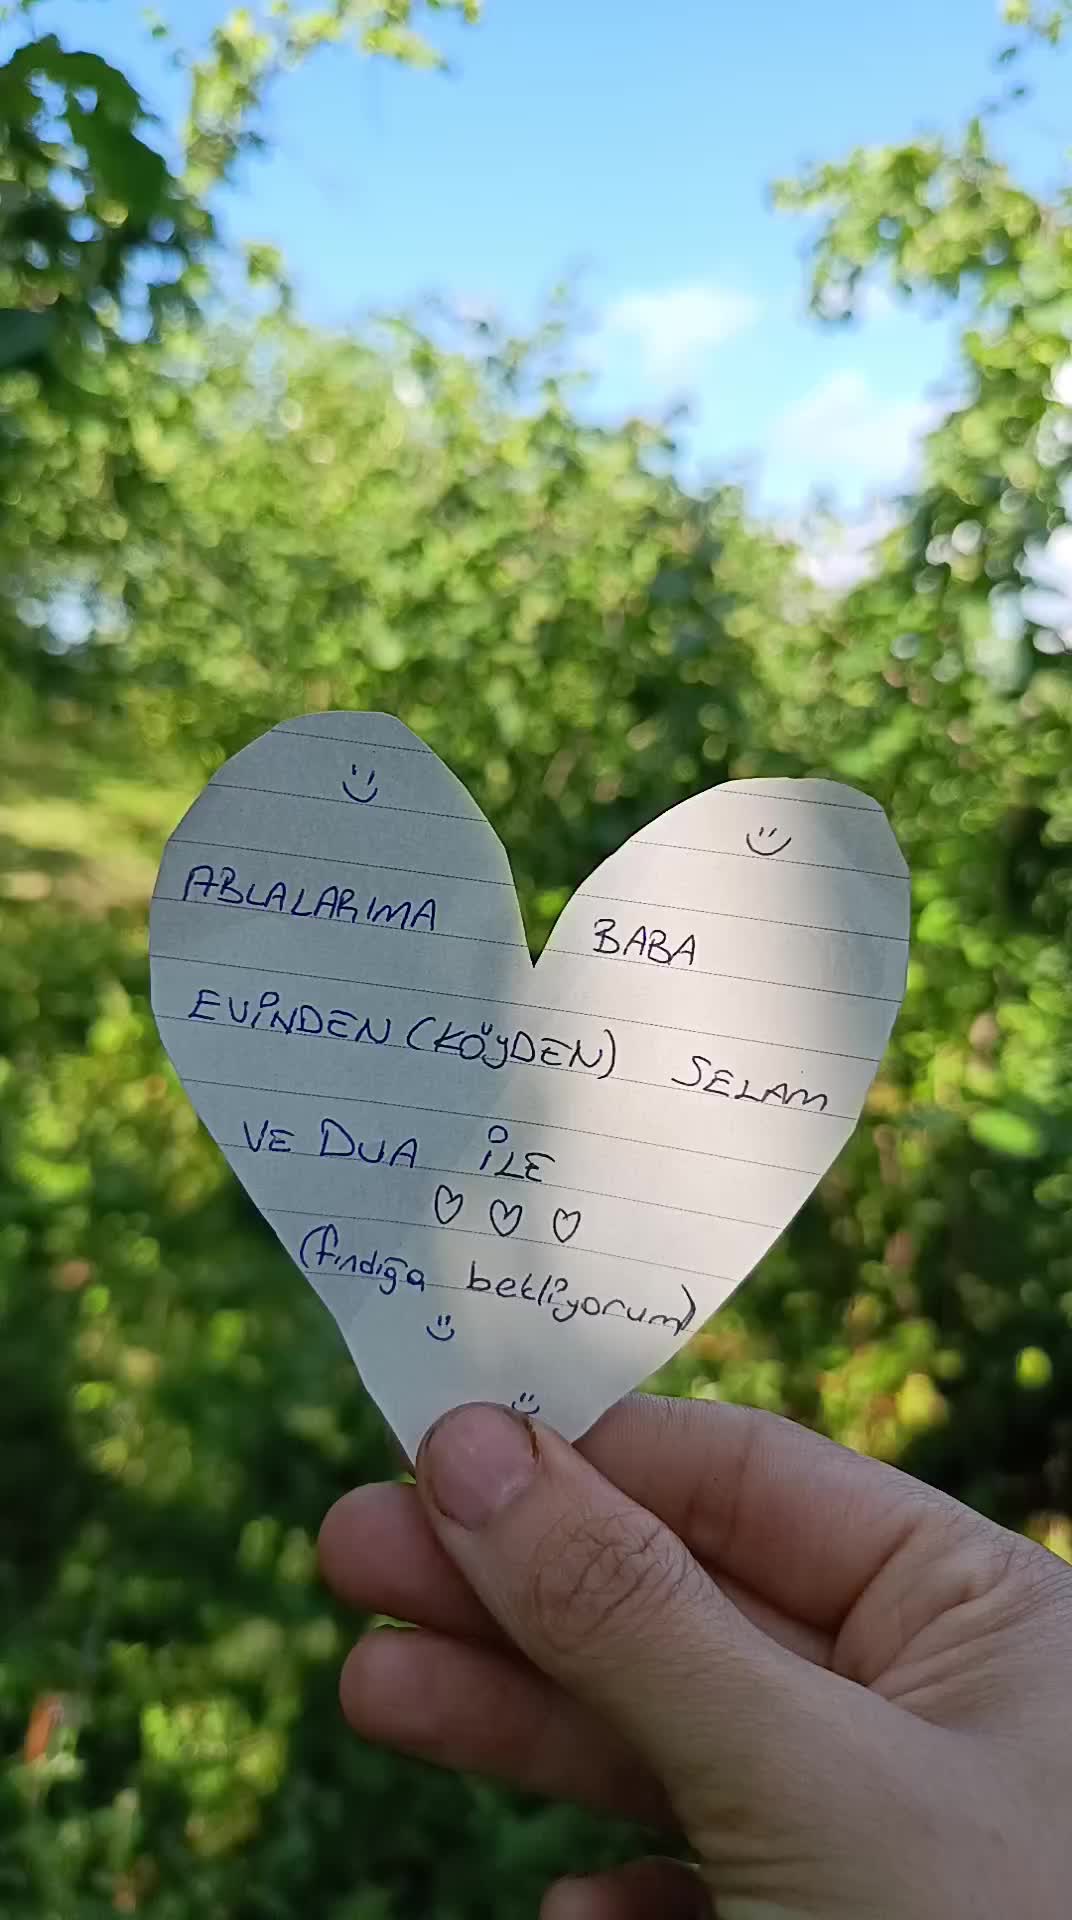 ABLALARIMA BABA
EVİNDEN (KÖYDEN) SELAM
VE DUA İLE
♡ ♡ ♡
(fındığa bekliyorum)